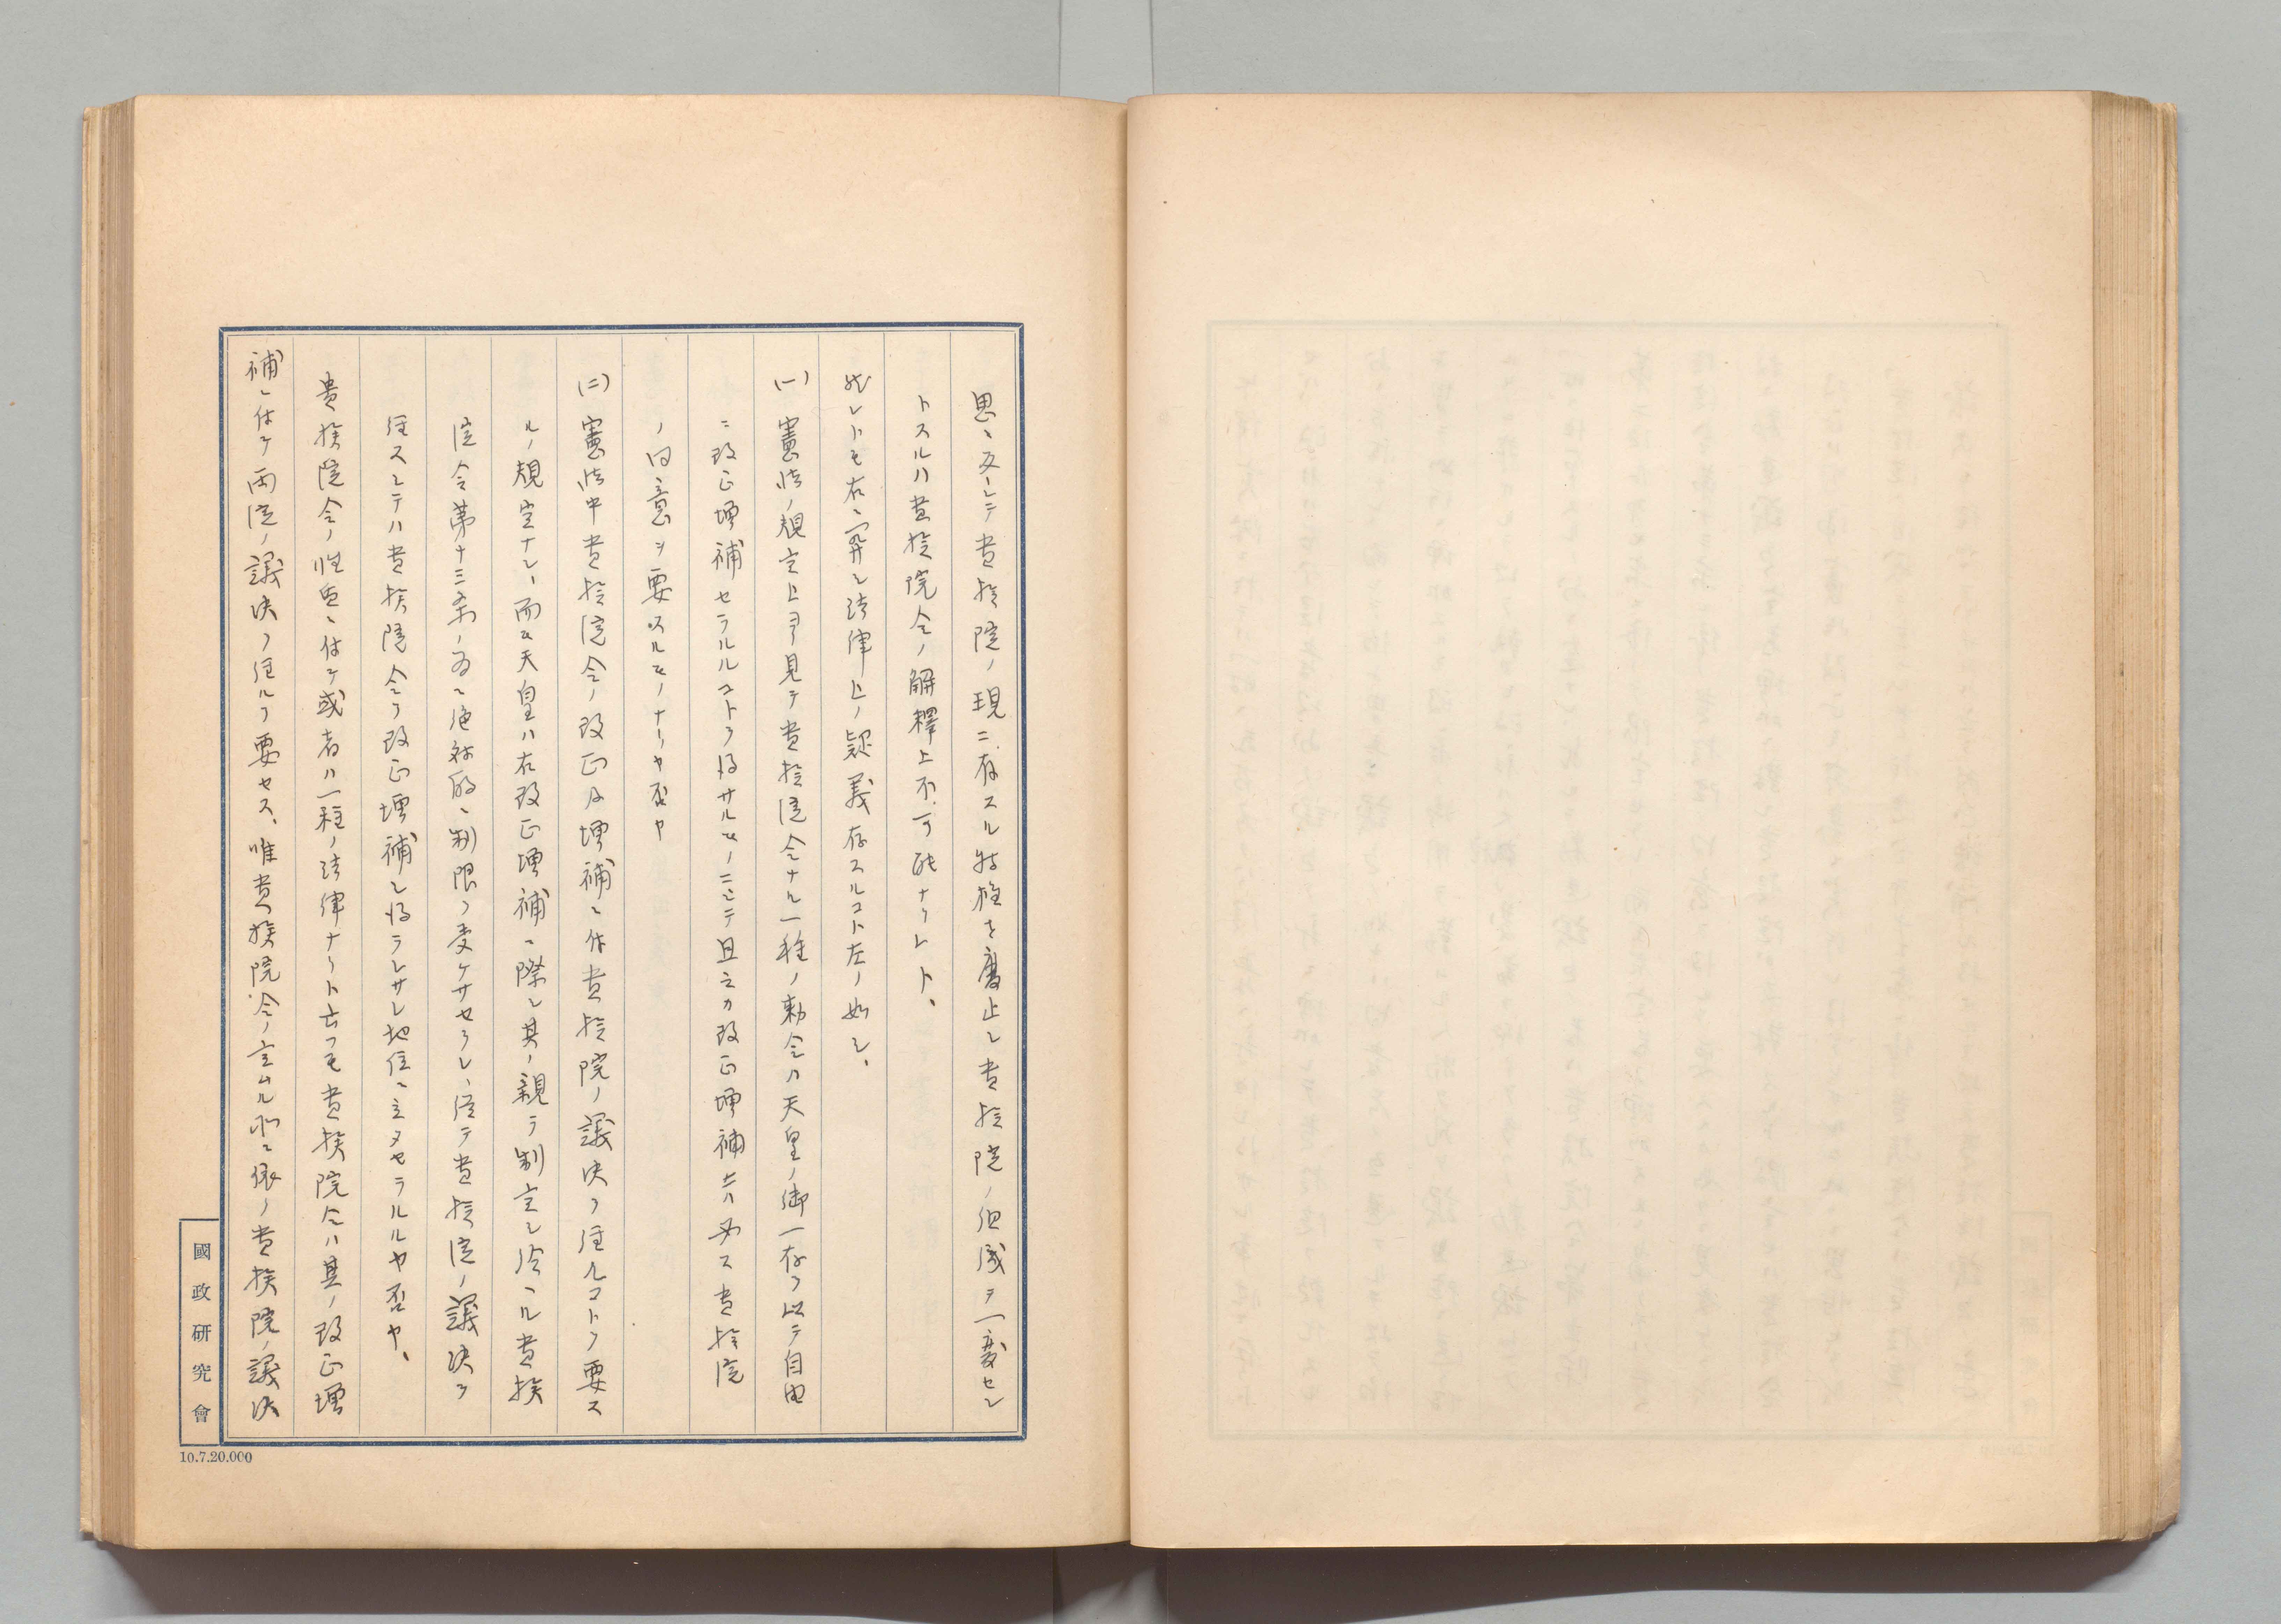 思ニ反シテ貴族院ノ現ニ存スル特権を廃止し貴族院ノ組織ヲ一変セン
トスルハ貴族院令ノ解釋上不可能ナリレト、
然レトモ右ニ関シ法律上ノ疑義存スルコト左ノ如シ、
(一)憲法ノ規定上ヨリ見テ貴族院令ナル一種ノ勅令ハ天皇ノ御一存ヲ以テ自由
ニ改正増補セラルルコトヲ得サルモノニシテ且之カ改正増補ハ必ス貴族院
ノ同意ヲ要スルモノナリヤ否ヤ
(二)憲法中貴族院令ノ改正及増補ニ付貴族院ノ議決ヲ経ルコトヲ要ス
ルノ規定ナシ、而モ天皇ハ右改正増補ニ際シ其ノ親ラ制定シ給ヘル貴族
院令第十三条ノ為ニ絶対的ニ制限ヲ受ケサセラレ、従テ貴族院ノ議決ヲ
経スシテハ貴族院令ヲ改正増補シ得ラレサル地位ニ立タセラルルヤ否ヤ、
貴族院令ノ性質ニ付テ或者ハ一種ノ法律ナリト云フモ貴族院令ハ其ノ改正増
補ニ付テ両院ノ議決ヲ経ルヲ要セス、唯貴族院令ノ定ムル所ニ依リ貴族院ノ議決
國政研究會
10.7.20.000